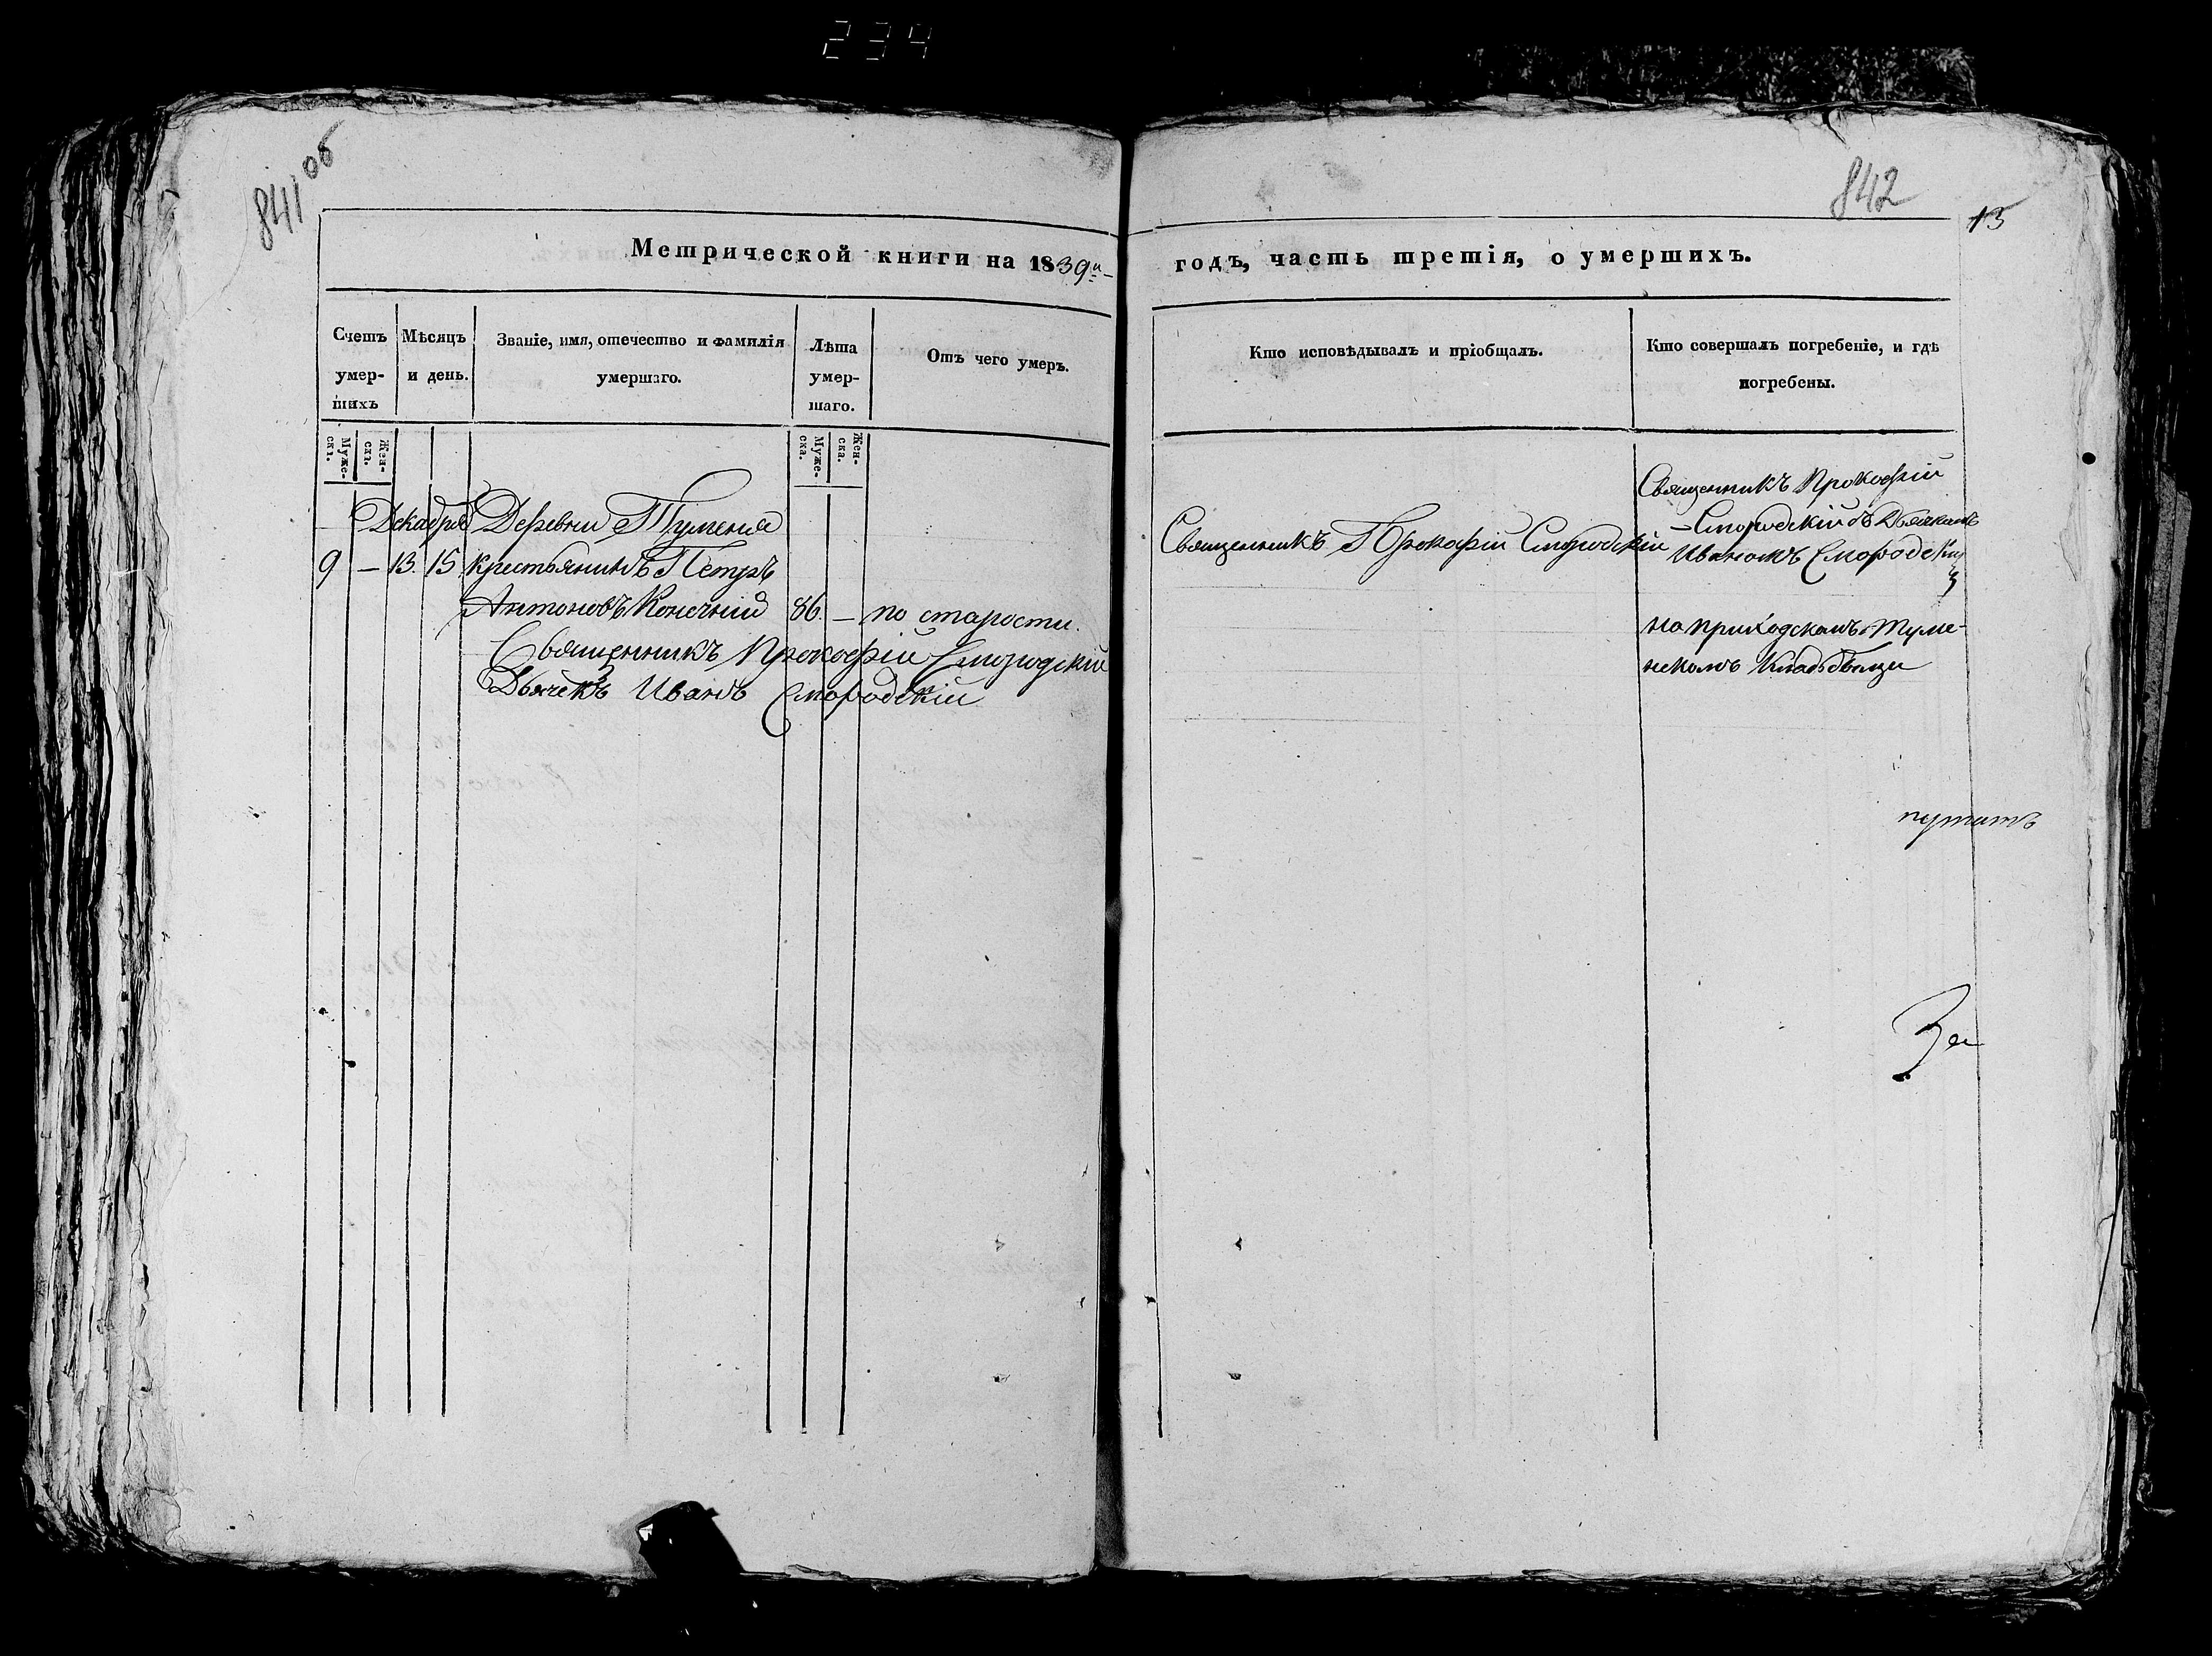 234
841 об
842
13
Метрической книги на 1839й
годъ, часть третія, о умершихъ.
Счетъ умер-шихъ
Мѣсяцъ и день.
Званіе, имя, отечество и фамилія
умершаго.
Лѣта умер-шаго.
Отъ чего умеръ.
Кто исповѣдывалъ и пріобщалъ.
Кто совершалъ погребеніе, и гдѣ
погребены.
Муже-ска.
Жен-ска.
Муже-ска.
Жен-ска.
Декабря Деревни Туменя
9 — 13. 15 крестьянинъ Петръ
Антоновъ Конечній 86. — по старости.
Священникъ Прокофій Смородскій
Дьячекъ Иванъ Смородскій
Священникъ Прокофій Смородскій
Священникъ Прокофій
Смородскій съ Дьячкомъ
Иваномъ Смородскимъ
на приходскомъ Туме-
нскомъ Кладбѣщи